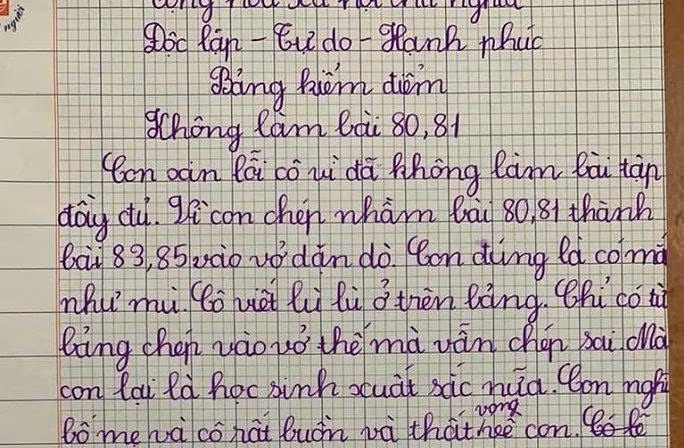 Cộng hoà xã hội chủ nghĩa
người
Độc lập - Tự do - Hạnh phúc
Bảng kiểm điểm
Không làm bài 80,81
Con xin lỗi cô vì đã không làm bài tập
đầy đủ. Vì con chép nhầm bài 80,81 thành
bài 83,85 vào vở dặn dò. Con đúng là có mắ
như mù. Cô viết lù lù ở trên bảng. Chỉ có từ
bảng chép vào vở thế mà vẫn chép sai. Mà
con lại là học sinh xuất sắc nữa. Con nghĩ
bố mẹ và cô rất buồn và thất vọng về con. Có lẽ